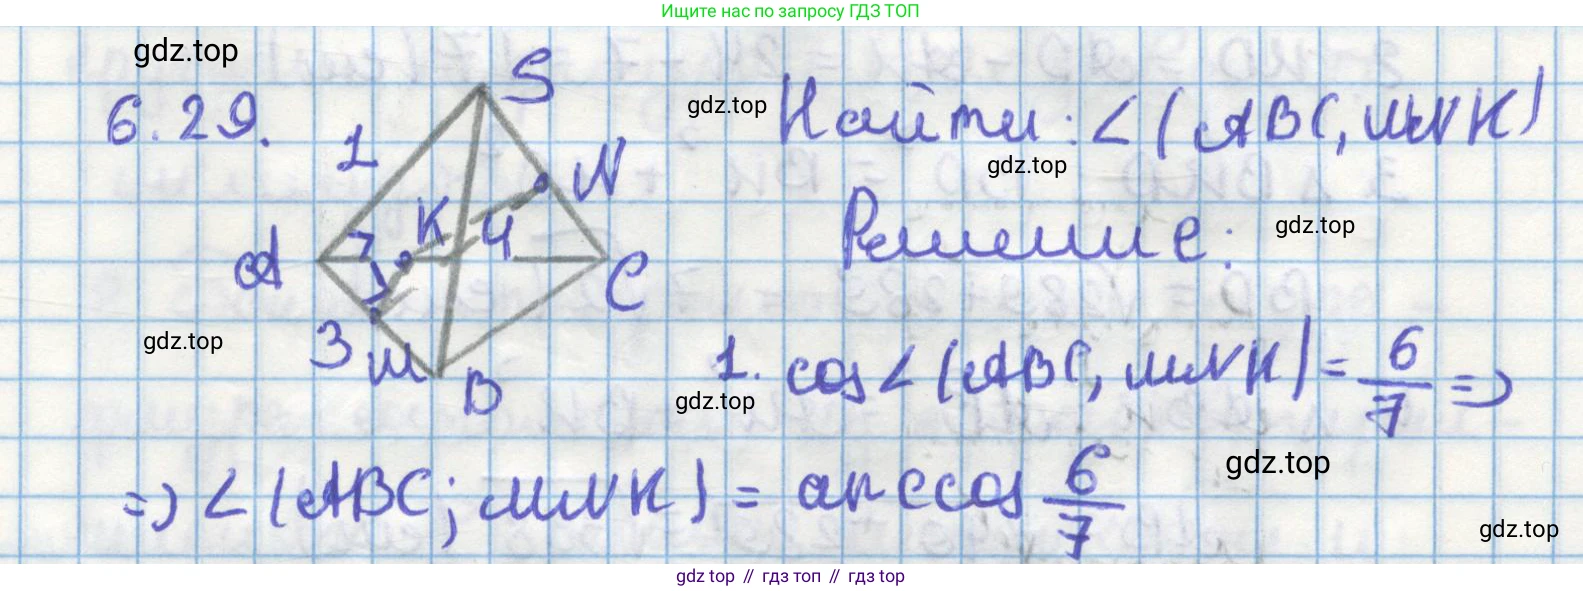 Ищите нас по запросу ГДЗ ТОП
gdz.top
6.29.
S
1
N
K
7
4
A
C
3
M
B
gdz.top
Найти: ∠(ABC, MNK)
gdz.top
Решение:
gdz.top
gdz.top
1. cos∠(ABC, MNK) = 6/7 =>
gdz.top
=> ∠(ABC; MNK) = arccos 6/7
gdz.top
gdz.top
gdz top // гдз топ // гдз top